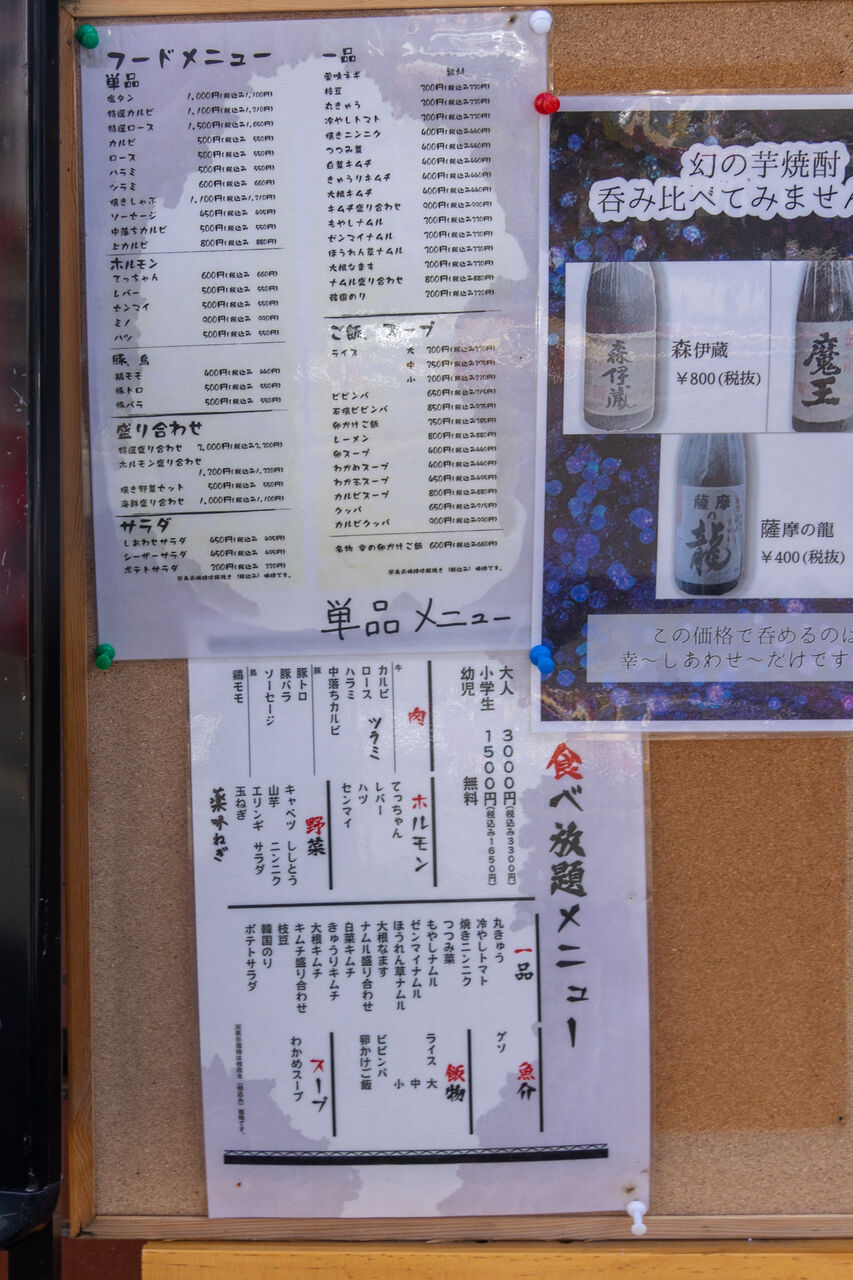 フードメニュー
単品
塩タン 1,000円(税込み1,100円)
特選カルビ 1,100円(税込み1,210円)
特選ロース 1,500円(税込み1,650円)
カルビ 500円(税込み 550円)
ロース 500円(税込み 550円)
ハラミ 500円(税込み 550円)
ツラミ 600円(税込み 660円)
焼きしゃぶ 1,100円(税込み1,210円)
ソーセージ 450円(税込み 495円)
中落ちカルビ 500円(税込み 550円)
上カルビ 800円(税込み 880円)
ホルモン
てっちゃん 600円(税込み 660円)
レバー 500円(税込み 550円)
センマイ 500円(税込み 550円)
ミノ 900円(税込み 990円)
ハツ 500円(税込み 550円)
豚、鳥
鶏モモ 400円(税込み 440円)
豚トロ 500円(税込み 550円)
豚バラ 500円(税込み 550円)
盛り合わせ
特選盛り合わせ
ホルモン盛り合わせ
1,200円(税込み1,320円)
焼き野菜セット 500円(税込み 550円)
海鮮盛り合わせ 1,000円(税込み1,100円)
サラダ
しあわせサラダ 450円(税込み 495円)
シーザーサラダ 450円(税込み 495円)
ポテトサラダ
一品
薬味ネギ 無料
枝豆
丸きゅう
冷やしトマト
焼きニンニク 400円(税込み440円)
つつみ菜 400円(税込み440円)
白菜キムチ 400円(税込み440円)
きゅうりキムチ 400円(税込み440円)
大根キムチ 400円(税込み440円)
キムチ盛り合わせ 900円(税込み990円)
もやしナムル
ゼンマイナムル
ほうれん草ナムル
大根なます
ナムル盛り合わせ 800円(税込み880円)
韓国のり
ご飯、スープ
ライス 大
中
小
ビビンバ 650円(税込み715円)
石焼ビビンバ 850円(税込み935円)
卵かけご飯 350円(税込み385円)
レーメン 800円(税込み880円)
卵スープ 400円(税込み440円)
わかめスープ 400円(税込み440円)
わか玉スープ 450円(税込み495円)
カルビスープ 800円(税込み880円)
クッパ 650円(税込み715円)
カルビクッパ 900円(税込み990円)
名物 幸の卵かけご飯 600円(税込み660円)
※表示価格は税抜き (税込み) 価格です。
単品メニュー
幻の芋焼酎
呑み比べてみません
森伊蔵
森伊蔵
￥800(税抜)
魔王
薩摩の龍
薩摩の龍
￥400(税抜)
この価格で呑めるのは
幸～しあわせ～だけです
食べ放題メニュー
大人 3000円(税込み3300円)
小学生 1500円(税込み1650円)
幼児 無料
肉
牛
カルビ
ロース ツラミ
ハラミ
中落ちカルビ
豚
豚トロ
豚バラ
ソーセージ
鳥
鶏モモ
ホルモン
てっちゃん
レバー
ハツ
センマイ
野菜
キャベツ ししとう
山芋 ニンニク
エリンギ サラダ
玉ねぎ
薬味ねぎ
一品
丸きゅう
冷やしトマト
焼きニンニク
つつみ菜
もやしナムル
ゼンマイナムル
ほうれん草ナムル
大根なます
ナムル盛り合わせ
白菜キムチ
きゅうりキムチ
大根キムチ
キムチ盛り合わせ
枝豆
韓国のり
ポテトサラダ
魚介
ゲソ
飯物
ライス 大
中
小
ビビンバ
卵かけご飯
スープ
わかめスープ
※表示価格は税抜き (税込み) 価格です。